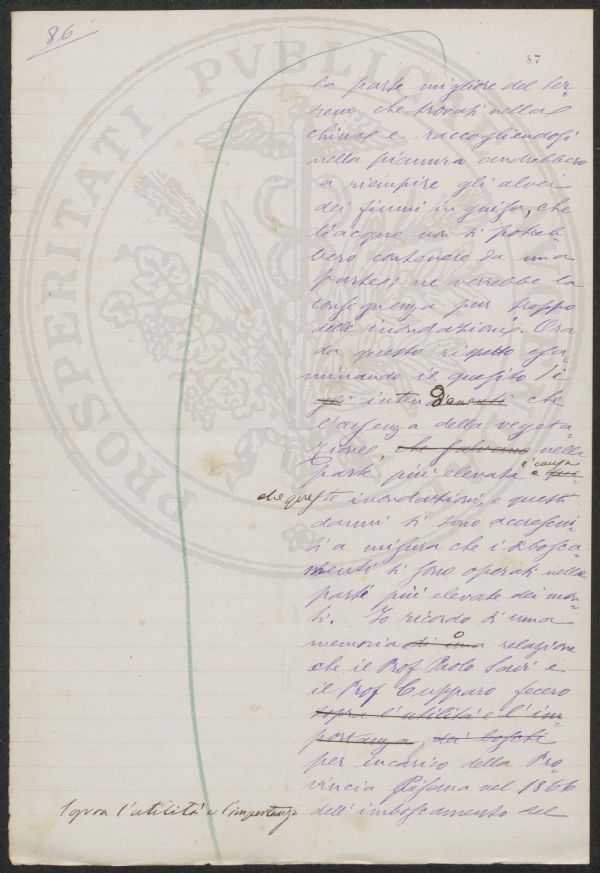 86
87
la parte migliore del ter-
reno che trovasi nella
china e raccogliendosi
nella pianura andrebbero
a riempire gli alvei
dei fiumi in guisa, che
l'acque non si potreb-
bero contenere da una
parte si ne verrebbe la
conseguenza pur troppo
delle inondazioni. Ora
da questo rispetto esa-
minando il quesito si
intende che
l'assenza della vegeta-
zione, che facciano nella
parte più elevata è causa
di queste inondazioni, e questi
danni si sono accresciu-
ti a misura che i disbosca-
menti si sono operati nelle
parti più elevate dei mon-
ti. Io ricordo d'una
memoria di una o relazione
che il Prof Paolo Savi e
il Prof Cupparo fecero
sopra l'utilità e l'im-
portanza dei boschi
per incarico della Pro-
vincia Pisana nel 1866
sopra l'utilità e l'importanza dell'imboscamento del
PROSPERITATI PVBLICAE